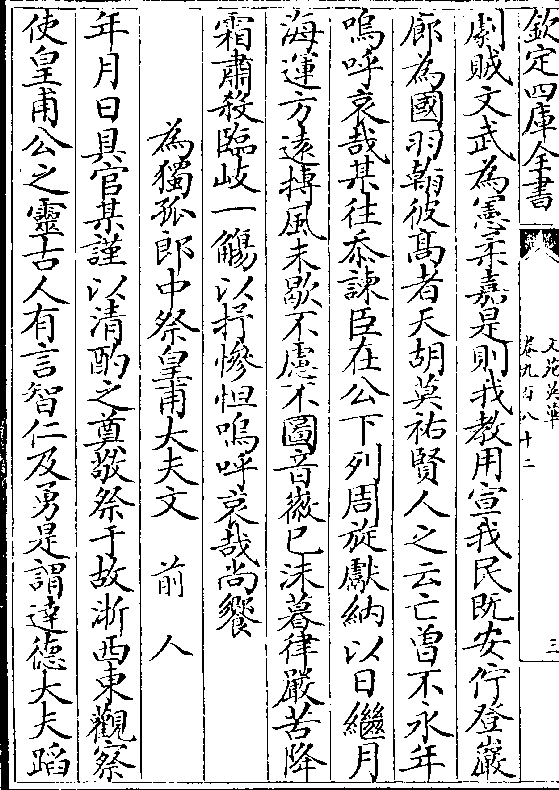 欽定四庫全書
文苑英華
卷九百八十二
三
劇賊文武為憲柔嘉是則我教用宣我民既安佇登巖
廊為國羽翰彼髙者天胡莫祐賢人之云亡曽不永年
嗚呼哀哉某往忝諫臣在公下列周旋獻納以日繼月
海運方遠摶風未歇不慮不圖音徽已沬暮律嚴苦降
霜肅殺臨歧一觴以抒慘怛嗚呼哀哉尚饗
為獨孤郎中祭皇甫大夫文　前人
年月日具官某謹以清酌之奠敬祭于故浙西東觀察
使皇甫公之靈古人有言智仁及勇是謂達德大夫蹈